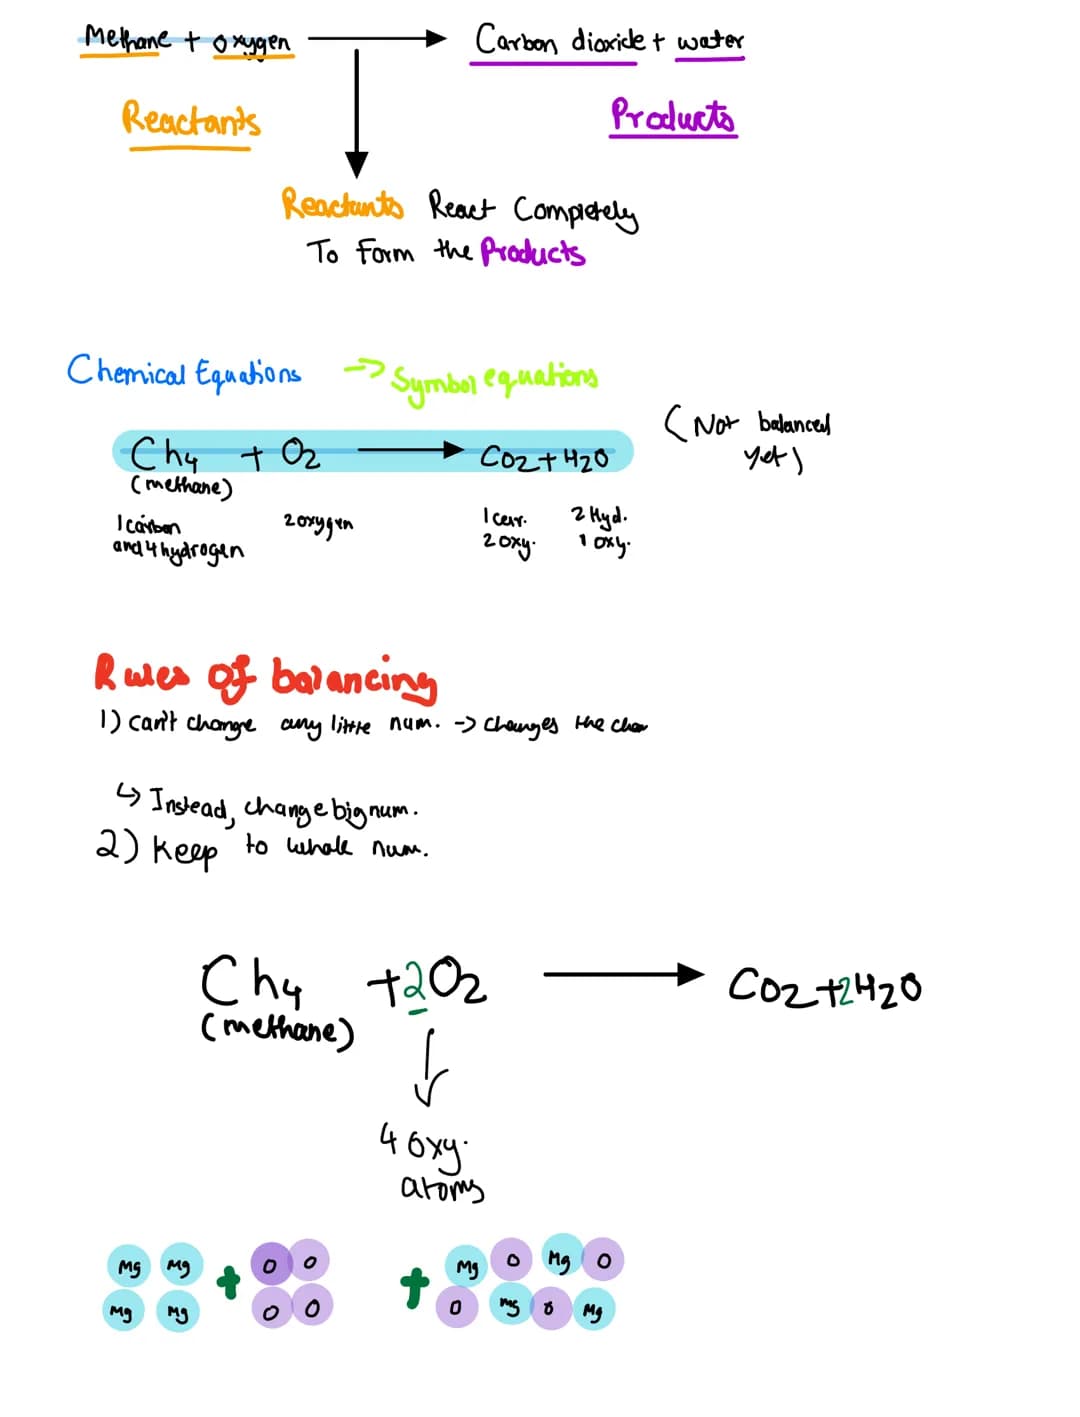 Methane + oxygen → Carbon dioxide + water
Reactants
Products
Reactants React Completely
To Form the Products
Chemical Equations → Symbol equations
(Not balanced
yet)
Ch4 + O2 → CO2 + H2O
(methane)
1 carbon
and 4 hydrogen
2 oxygen
1 car.
2 oxy.
2 Hyd.
1 oxy.
Rules of balancing
1) can't change any little num. → changes the
↳ Instead, change big num.
2) Keep to whole num.
Ch4 + 2O2 → CO2 + 2H2O
(methane)
↓
4 Oxy.
atoms
Mg Mg + O O + Mg O Mg O
Mg Mg O O O Mg O Mg